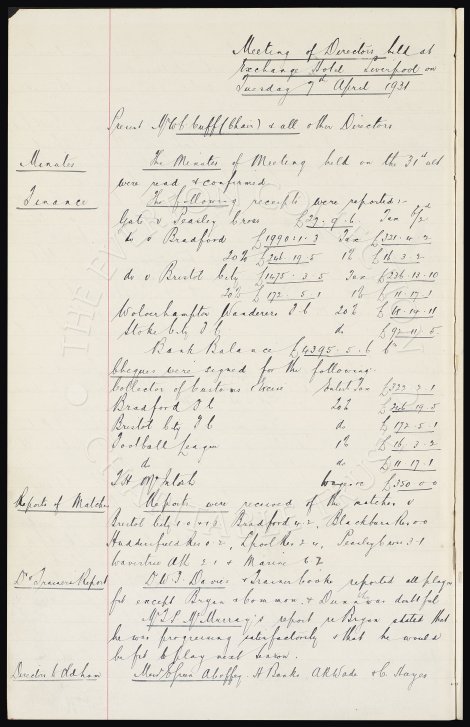 Meeting of Directors held at
Exchange Hotel Liverpool on
Tuesday 7th April 1931
Present Mr W C Cuff (Chair) & all other Directors
Minutes
The Minutes of Meeting held on the 31st ult
were read & confirmed.
Finance
The following receipts were reported:-
Gate v Peasley Cross £27.9.6 Tax
do v Bradford £1990.1.3 Tax £321.4.2
20% £246.19.5 1% £16.3.2
do v Bristol City £1475.3.5 Tax £236.13.10
20% £172.5.1 1% £11.17.1
Wolverhampton Wanderers F.C 20%
Stoke City F.C do £92.11.5
Bank Balance £4395.5.6
Cheques were signed for the following:
Collector of Customs & Excise Entert Tax
Bradford F.C 20% £246.19.5
Bristol City F.C do £172.5.1
Football League 1% £16.3.2
do do £11.17.1
T.H. McIntosh Wages £350.0.0
Reports of Matches
Reports were received of the matches v
Bristol City Bradford 4.2, Blackburn Res 0.0
Huddersfield Res 0.2, Lpool Res 2.4, Peasley Cross 3.1
Wavertree Ath 2.1 & Marine
Dr & Trainers Report
Dr W.J. Davies & Trainer Cooke reported all players
fit except Bryan & Common & Dunn was doubtful
McMurray's report re Bryan stated that
he was progressing satisfactorily & that he would
be fit to play next season.
Directors to Oldham
Messrs Green A Coffey. H Banks A R Wade & C. Hayes